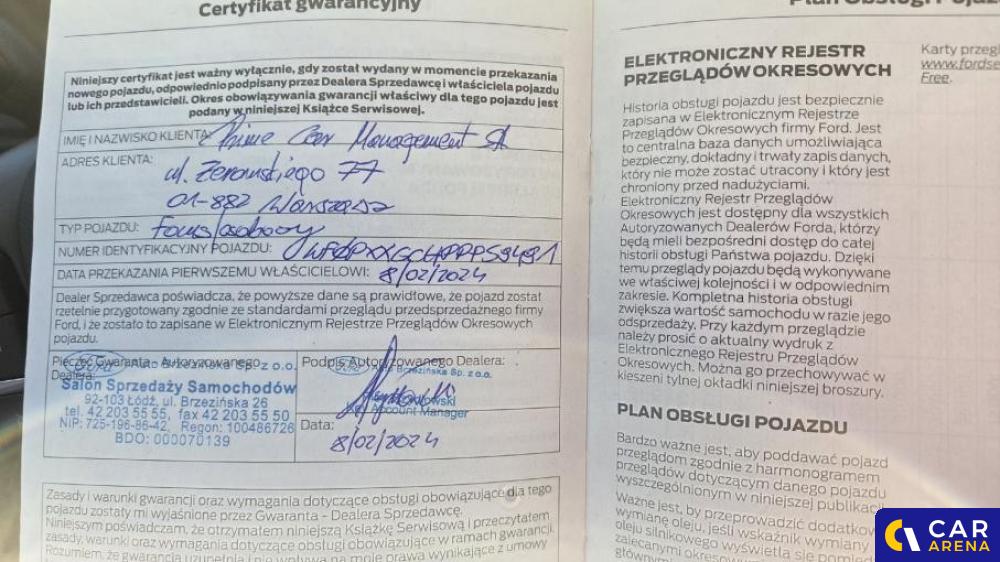 Certyfikat gwarancyjny
Niniejszy certyfikat jest ważny wyłącznie, gdy został wydany w momencie przekazania
nowego pojazdu, odpowiednio podpisany przez Dealera Sprzedawcę i właściciela pojazdu
lub ich przedstawicieli. Okres obowiązywania gwarancji właściwy dla tego pojazdu jest
podany w niniejszej Książce Serwisowej.
IMIĘ I NAZWISKO KLIENTA: Prime Car Management SA
ADRES KLIENTA:
ul. Żeromskiego 77
01-882 Warszawa
TYP POJAZDU: Focus/osobowy
NUMER IDENTYFIKACYJNY POJAZDU:
DATA PRZEKAZANIA PIERWSZEMU WŁAŚCICIELOWI: 8/02/2024
Dealer Sprzedawca poświadcza, że powyższe dane są prawidłowe, że pojazd został
rzetelnie przygotowany zgodnie ze standardami przeglądu przedsprzedażnego firmy
Ford, i że zostało to zapisane w Elektronicznym Rejestrze Przeglądów Okresowych
pojazdu.
Pieczęć Gwaranta - Autoryzowanego
Dealera:
Auto Brzezińska Sp. z o.o.
Salon Sprzedaży Samochodów
92-103 Łódź, ul. Brzezińska 26
tel. 42 203 55 55, fax 42 203 55 50
NIP: 725-196-86-42, Regon: 100486726
BDO: 000070139
Podpis Autoryzowanego Dealera:
Brzezińska Sp. z o.o.
Account Manager
Data:
8/02/2024
Zasady i warunki gwarancji oraz wymagania dotyczące obsługi obowiązujące dla tego
pojazdu zostały mi wyjaśnione przez Gwaranta - Dealera Sprzedawcę.
Niniejszym poświadczam, że otrzymałem niniejszą Książkę Serwisową i przeczytałem
zasady, warunki oraz wymagania dotyczące obsługi obowiązujące w ramach gwarancji.
Rozumiem, że gwarancja uzupełnia i nie wpływa na moje prawa wynikające z umowy
Plan Obsługi Pojazdu
ELEKTRONICZNY REJESTR
PRZEGLĄDÓW OKRESOWYCH
Historia obsługi pojazdu jest bezpiecznie
zapisana w Elektronicznym Rejestrze
Przeglądów Okresowych firmy Ford. Jest
to centralna baza danych umożliwiająca
bezpieczny, dokładny i trwały zapis danych,
który nie może zostać utracony i który jest
chroniony przed nadużyciami.
Elektroniczny Rejestr Przeglądów
Okresowych jest dostępny dla wszystkich
Autoryzowanych Dealerów Forda, którzy
będą mieli bezpośredni dostęp do całej
historii obsługi Państwa pojazdu. Dzięki
temu przeglądy pojazdu będą wykonywane
we właściwej kolejności i w odpowiednim
zakresie. Kompletna historia obsługi
zwiększa wartość samochodu w razie jego
odsprzedaży. Przy każdym przeglądzie
należy prosić o aktualny wydruk z
Elektronicznego Rejestru Przeglądów
Okresowych. Można go przechowywać w
kieszeni tylnej okładki niniejszej broszury.
PLAN OBSŁUGI POJAZDU
Bardzo ważne jest, aby poddawać pojazd
przeglądom zgodnie z harmonogramem
przeglądów dotyczącym danego pojazdu
wyszczególnionym w niniejszej publikacji.
Ważne jest, by przeprowadzić dodatkow
wymianę oleju, jeśli wskaźnik wymiany
oleju silnikowego wyświetla się pomiędzy
zalecanymi okresow
głównym
Karty przegl
www.fordse
Free.
CAR
ARENA